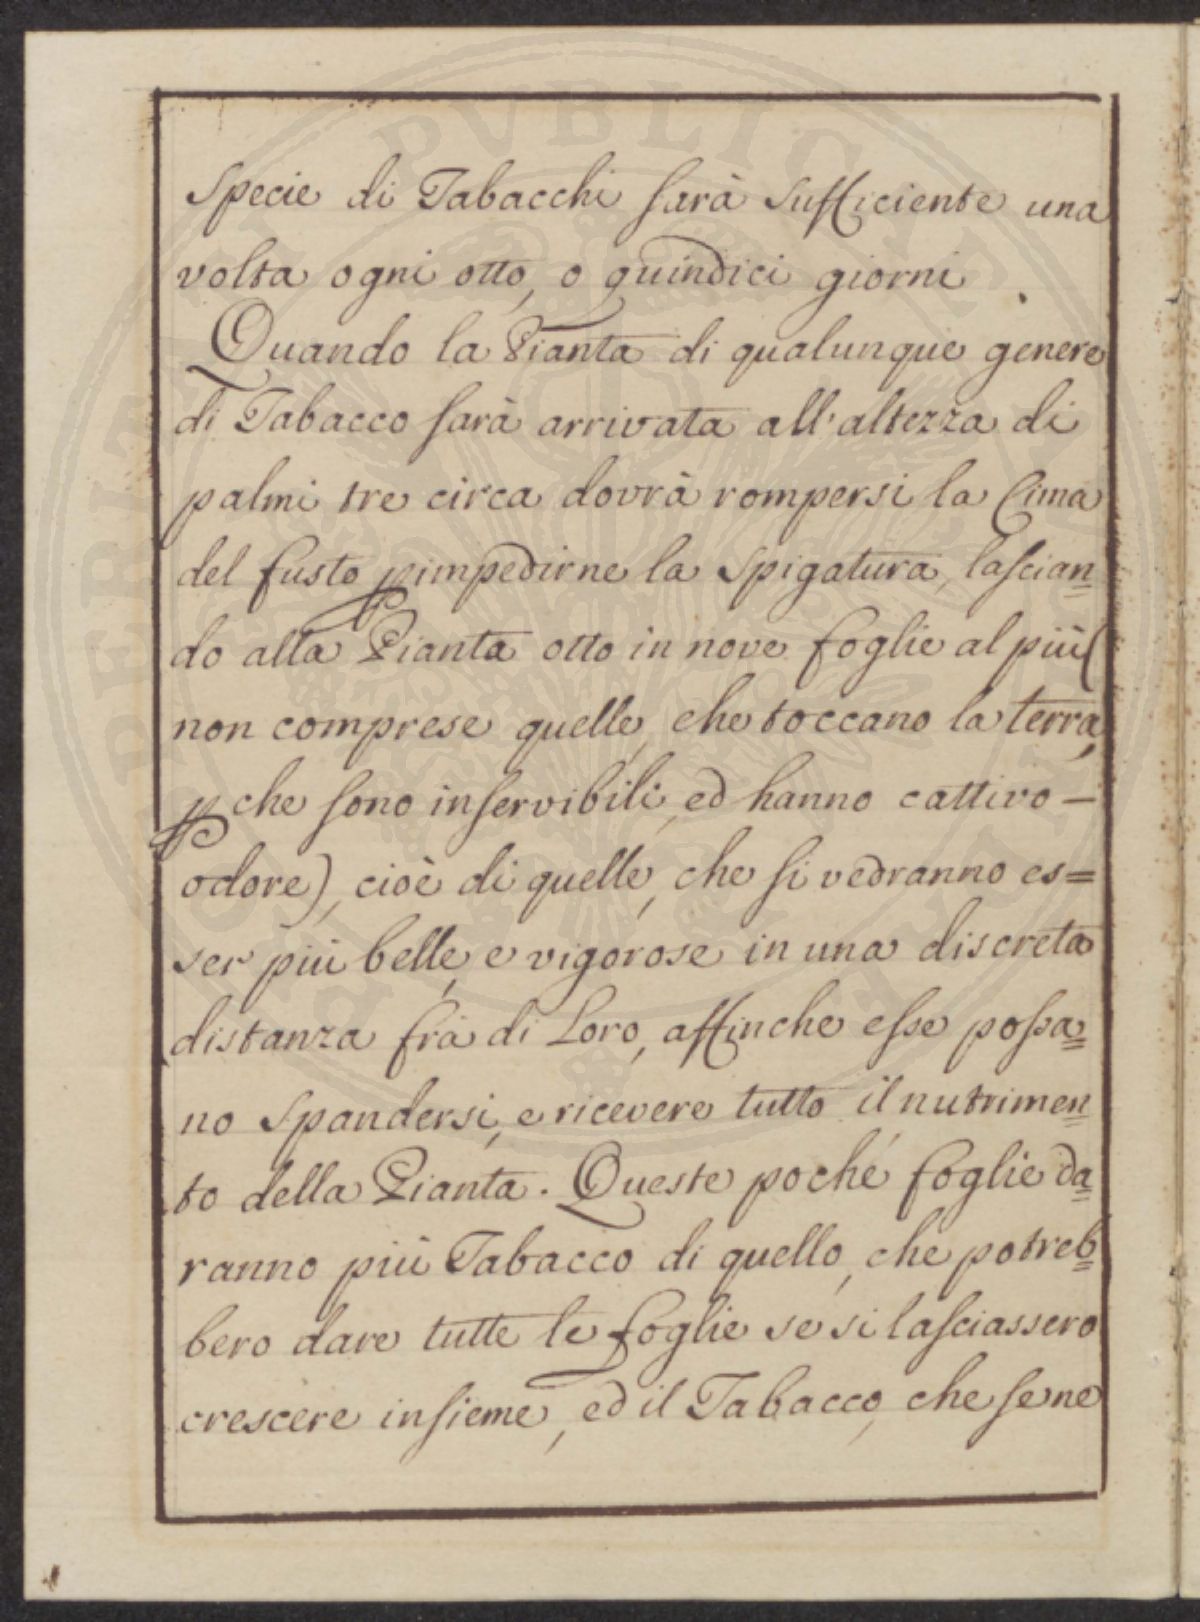 specie di Tabacchi sarà sufficiente una
volta ogni otto, o quindici giorni.
Quando la Pianta di qualunque genere
di Tabacco sarà arrivata all'altezza di
palmi tre circa dovrà rompersi la Cima
del fusto p impedirne la spigatura, lascian=
do alla Pianta otto in nove foglie al più (
non comprese quelle, che toccano la terra,
p che sono inservibili, ed hanno cattivo –
odore), cioè di quelle, che si vedranno es=
ser più belle, e vigorose in una discreta
distanza frà di Loro, affinche esse possa=
no spandersi, e ricevere tutto il nutrimen=
to della Pianta. Queste poche foglie da=
ranno più Tabacco di quello, che potreb=
bero dare tutte le foglie se si lasciassero
crescere insieme, ed il Tabacco, che se ne